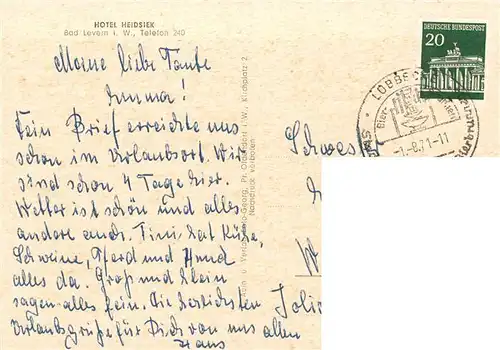 HOTEL HEIDSIEK
Bad Levern i. W., Telefon 240
Meine liebe Tante
Emma!
Dein Brief erreichte uns
schon im Urlaubsort. Wir
sind schon 4 Tage hier.
Wetter ist schön und alles
andere auch. Tini, hat Kühe,
Schweine, Pferd und Hund
alles da. Groß und klein
sagen alles fein. Die herzlichsten
Urlaubsgrüße für Dich von uns allen
Hans
Georg, Pr. Oldendorf i. W., Kirchplatz 2
Nachdruck verboten
DEUTSCHE BUNDESPOST
20
LÜBBECKE
-1.-8.71-11
Schwes